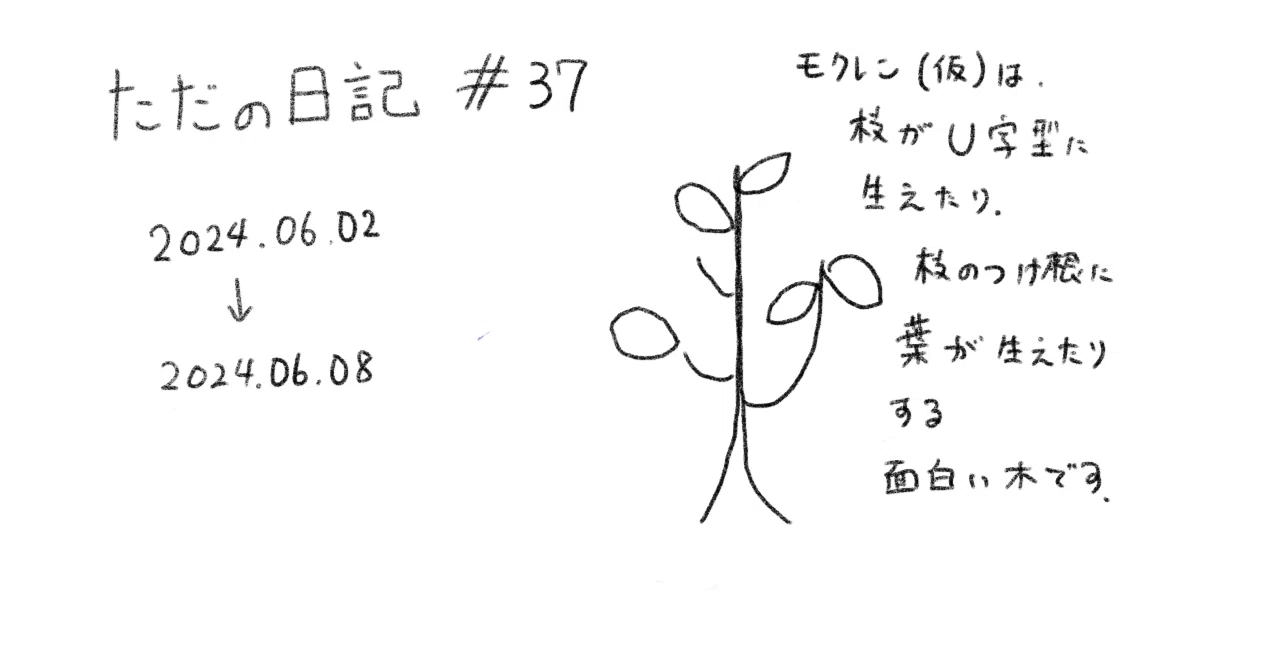 ただの日記 #37
2024.06.02
↓
2024.06.08
モクレン(仮)は.
枝がU字型に
生えたり.
枝のつけ根に
葉が生えたり
する
面白い木です.